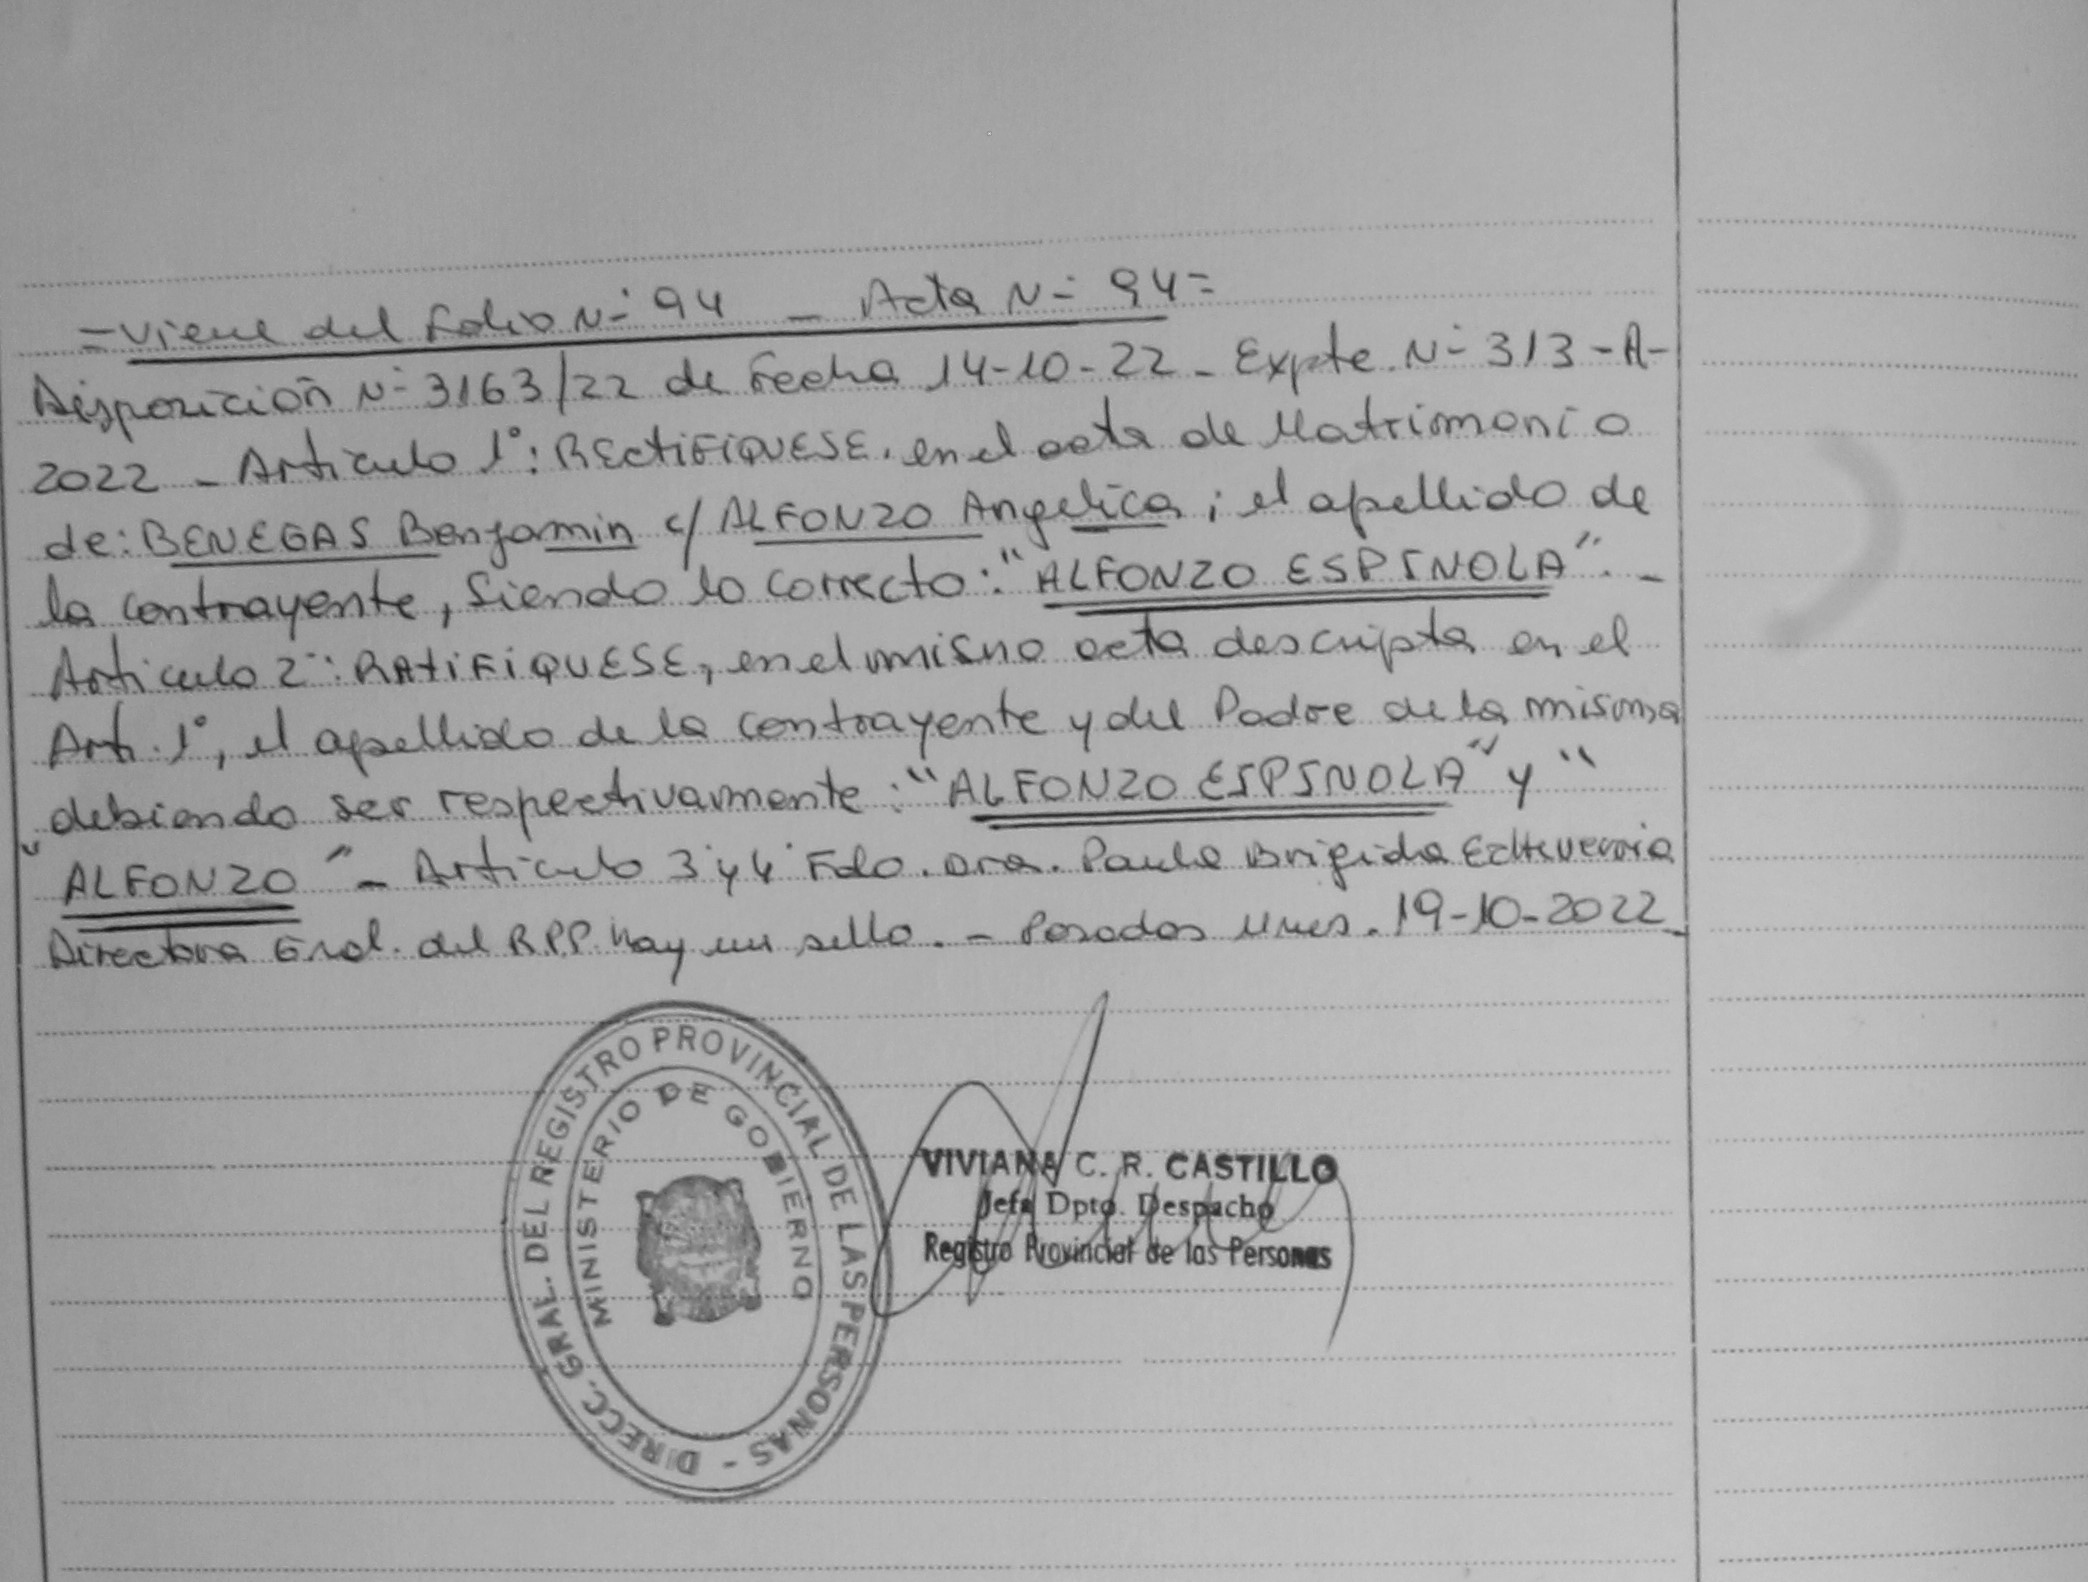 =Viene del Folio N- 94 - Acta N- 94=
Disposición N- 3163/22 de Fecha 14-10-22 - Expte. N- 313-A-
2022 - Articulo 1°: RECTIFIQUESE. en el acta de Matrimonio
de: BENEGAS Benjamin c/ ALFONZO Angelica; el apellido de
la contrayente, Siendo lo correcto: "ALFONZO ESPINOLA". -
Articulo 2-: RATIFIQUESE, en el mismo acta descripta en el
Art. 1°, el apellido de la contrayente y del Padre de la misma
debiendo ser respectivamente: "ALFONZO ESPINOLA" y "
"ALFONZO" - Articulo 3 y 4 Fdo. Dra. Paula Brigida Echeverria
Directora Gral. del R.P.P. hay un sello. - Posadas Mnes. 19-10-2022
DIRECC. GRAL. DEL REGISTRO PROVINCIAL DE LAS PERSONAS -
MINISTERIO DE GOBIERNO
VIVIANA C. R. CASTILLO
Jefa Dpto. Despacho
Registro Provincial de las Personas